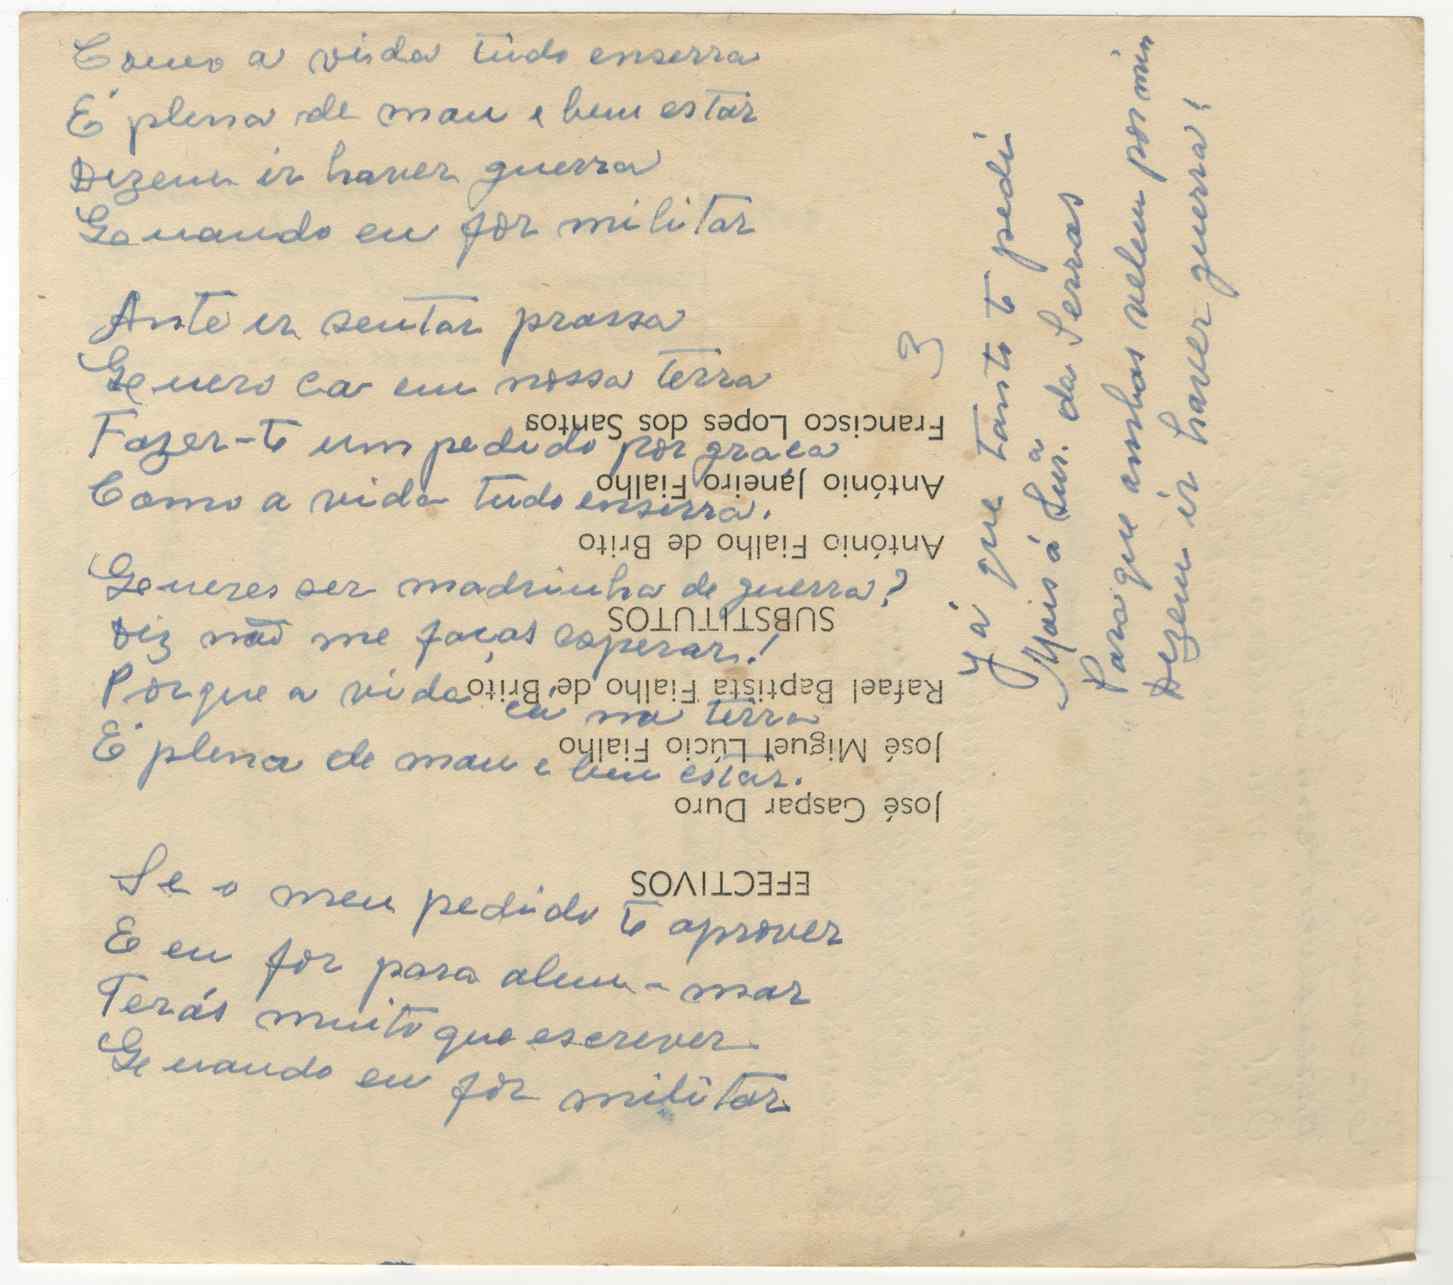 Como a vida tudo enserra
É plena de mau e bem estar
Dizem ir haver guerra
Quando eu fôr militar
Ante ir sentar prassa
Quero ca em nossa terra
Fazer-te um pedido por graça
Como a vida tudo enserra.
Queres ser madrinha de guerra?
Diz não me faças esperar!
Porque a vida cá na terra
É plena de mau e bem estar.
Se o meu pedido te aprover
E eu fôr para alem-mar
Terás muito que escrever
Quando eu fôr militar
Já que tanto te pedi
Mais á Sur.a da Serras
Para que ambas velem por mim
Dizem ir haver guerra!
3
EFECTIVOS
José Gaspar Duro
José Miguel Lúcio Fialho
Rafael Baptista Fialho de Brito
SUBSTITUTOS
António Fialho de Brito
António Janeiro Fialho
Francisco Lopes dos Santos